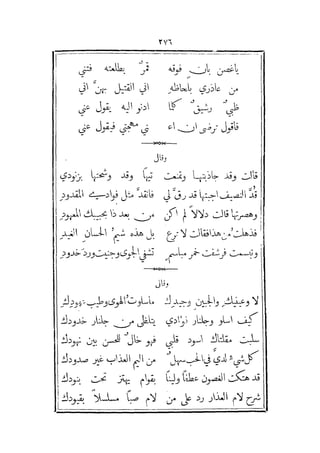 ٢٧٦
ياغصن بان فوقه قمرٌ بطلعته فتني
من عاذري بلحاظه اني القتيل بهنَّ اني
ظبيٌ رشيقٌ كلما ادنو اليه يقول عني
فاقول ترضى ان اء ني مهجتي فيقول عني
وقال
قالت وقد جاذبتها وتمنعت تيهًا وقد وشحتها بزنودي
قُدَّ النصيف اجبتها قد رق لي فانقدَّ مثل فوادي المقدود
وهصرتها قالت دلالاً لم اكن من بعد ذا بحبيبك المعهود
فذهلت من هذا فقالت لا ترع بل هذه شيم الحسان الغيد
وتبسمت فرشفت خمر مباسم تشفي الجوى وجنيت ورد خدود
وقال
لا وعينيك والجبين وجيدك ماسلوت الهوى وطيب عهودك
كيف اسلو وجلنار فوادي يتلظى من جلنار خدودك
سلبت مقلتاك اسود قلبي فهو خال للحسن بين نهودك
كل شيء لديَّ في الحب سهلٌ من اليم العذاب غير صدودك
قد هتكت الغصون عطفًا ولينًا بقوام يهتز تحت بنودك
شرح لام العذار رد على من لام صبًا مسلسلاً بقيودك